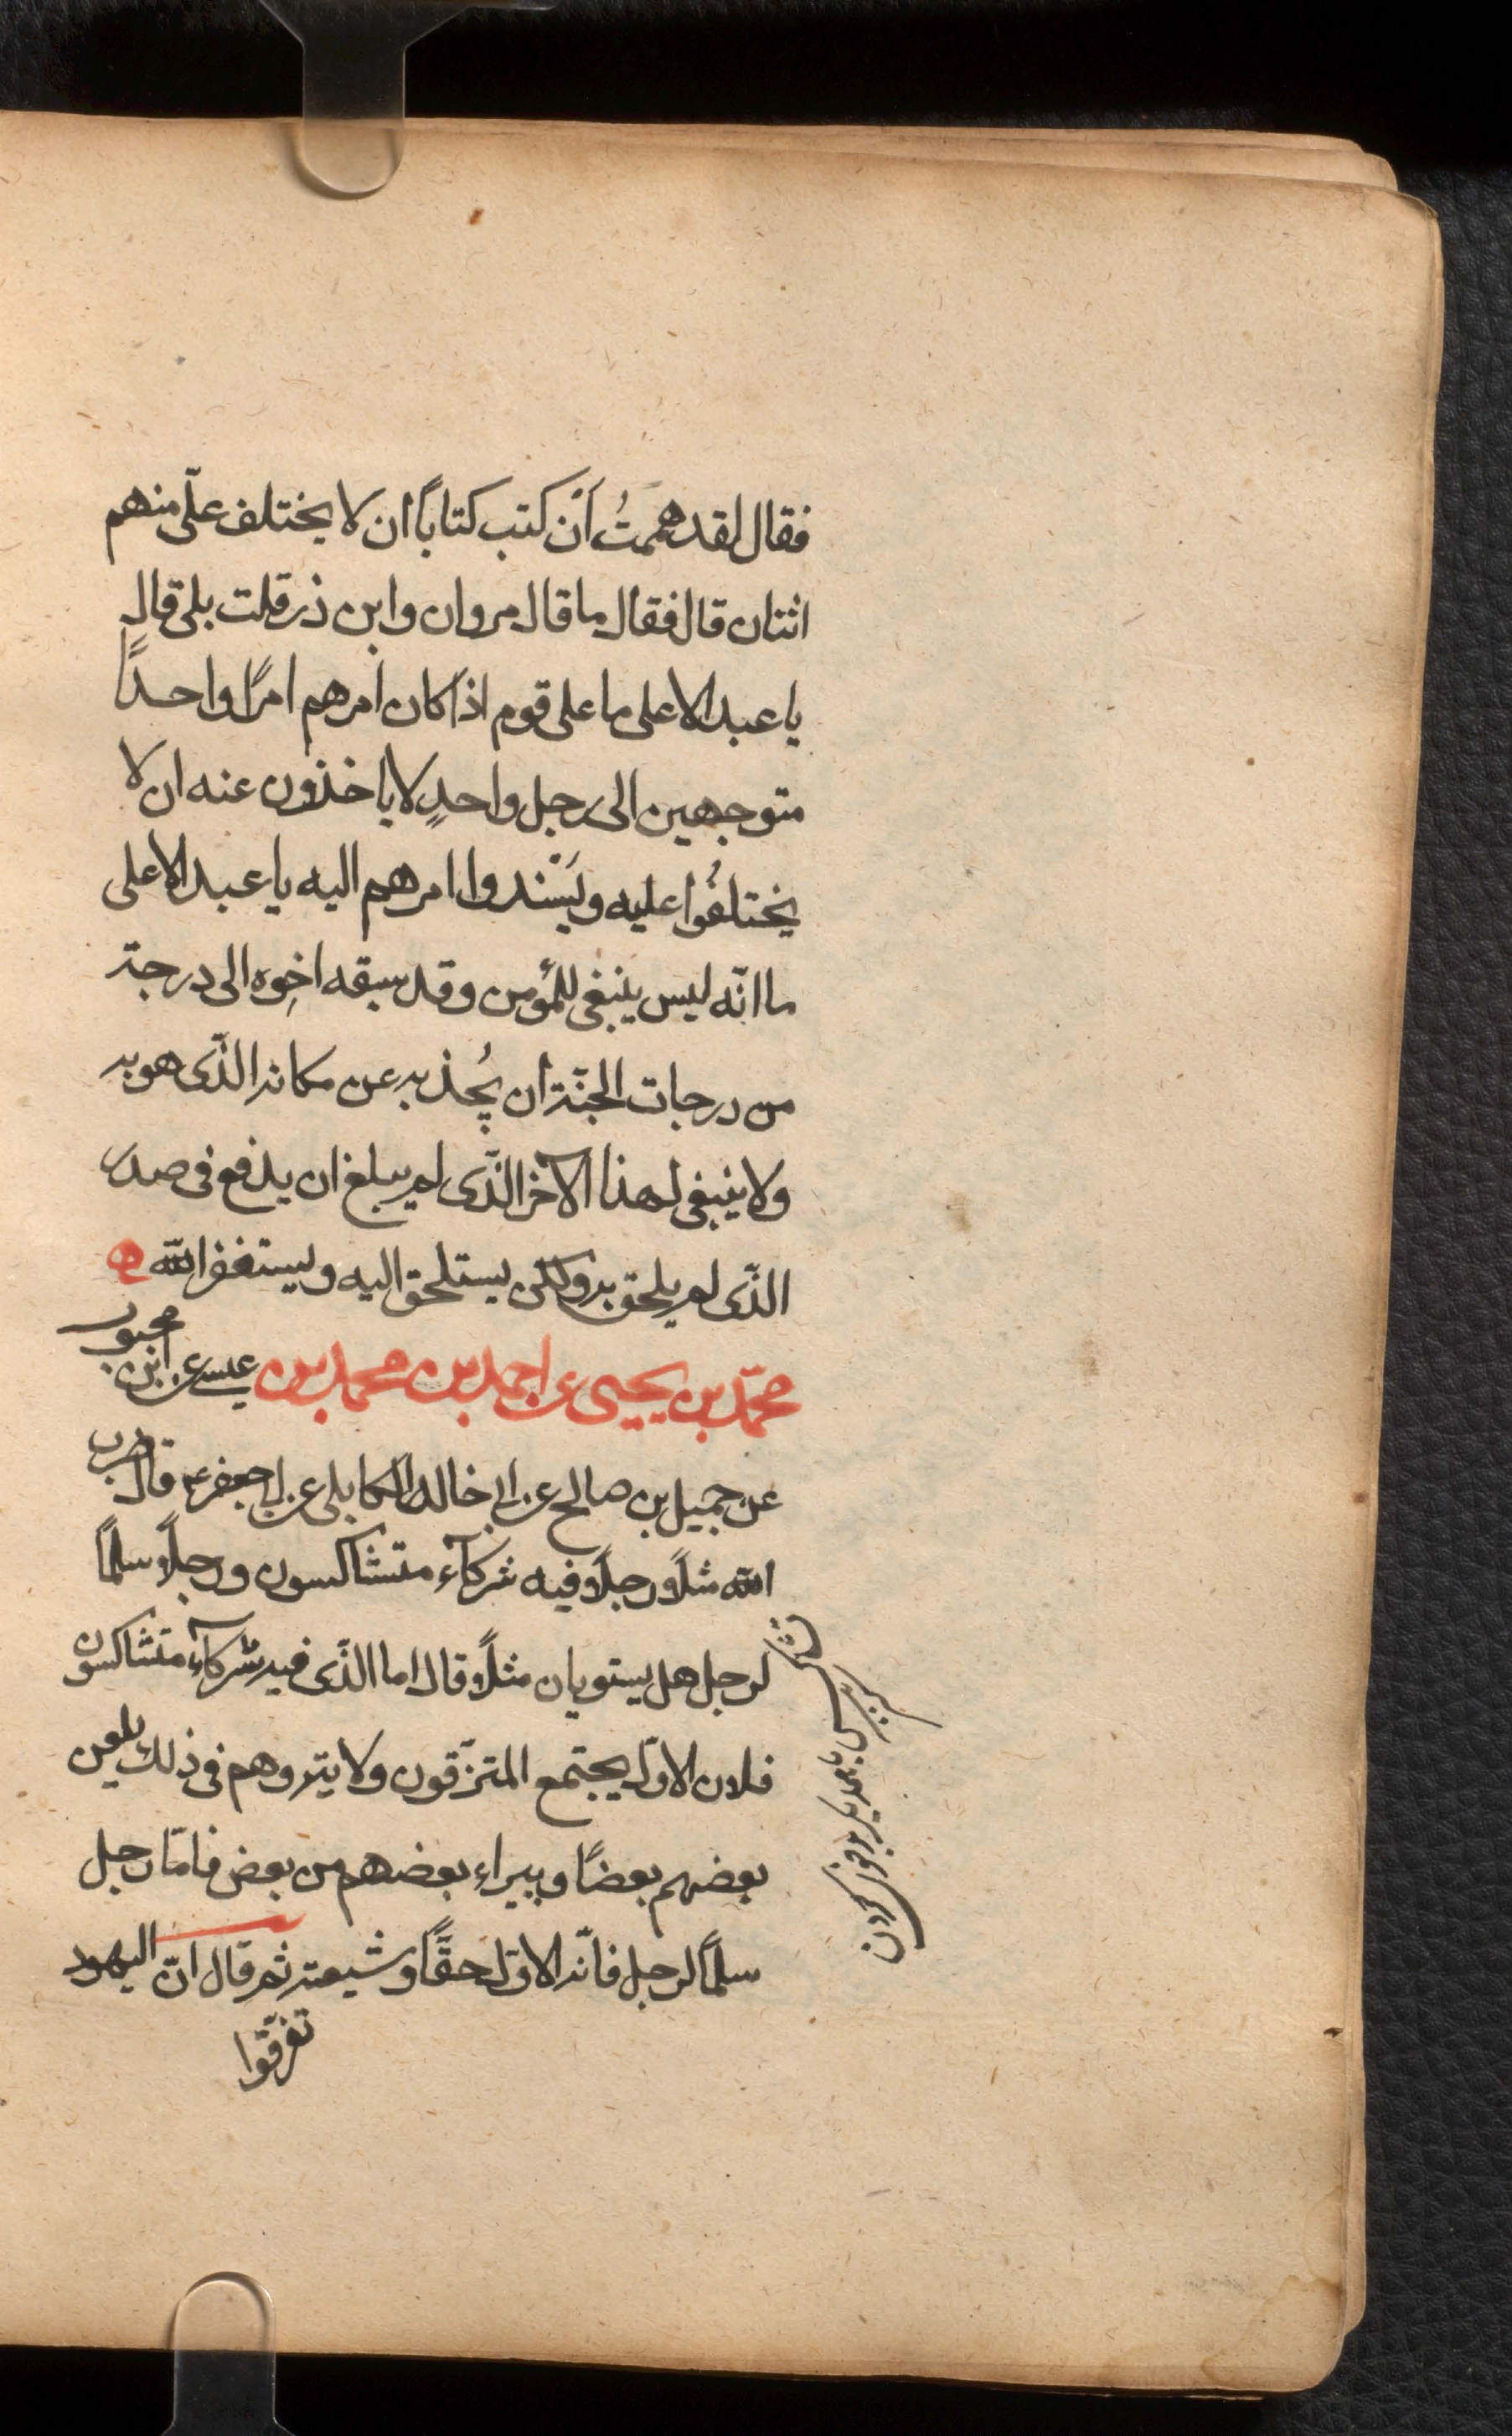 فقال لقد هممتُ أن كتب كتاباً ان لا يختلف علىّ منهم
اثنان قال فقال ما قال مروان وابن ذر قلت بلى قال
يا عبد الاعلى ما على قوم اذا كان امرهم امرًا واحداً
متوجهين الى رجل واحدٍ لا ياخذون عنه ان لا
يختلفُوا عليه ويَسْندوا امرهم اليه يا عبد الاعلى
ما انّه ليس ينبغى للمؤمن وقد سبقه اخوه الى درجة
من درجات الجنّة أن يُجذبه عن مكانه الذّى هو به
ولا ينبغى لهذا الآخر الذّى لم يبلغ ان يدفع فى صدر
الذّى لم يلحق به ولكن يستلحق اليه ويستغفر الله
محمّد بن يحيى عن احمد بن محمد بن عيسى عن ابن محبوب
عن جميل بن صالح عن ابى خالد الكابلى عن ابى جعفر ع قال ضرب
الله مثلاً رجلاً فيه شركآء متشاكسون ورجلاً سلماً
لرجل هل يستويان مثلاً قال اما الذّى فيه شركآء متشاكسون
فلان الاوّل يجتمع المتفرّقون ولايته وهم فى ذلك يلعن
بعضهم بعضًا ويبراء بعضهم من بعض فامّا رجل
سلماً لرجل فانّه الاوّل حقًّا وشيعته ثم قال انّ اليهود
تفرّقوا